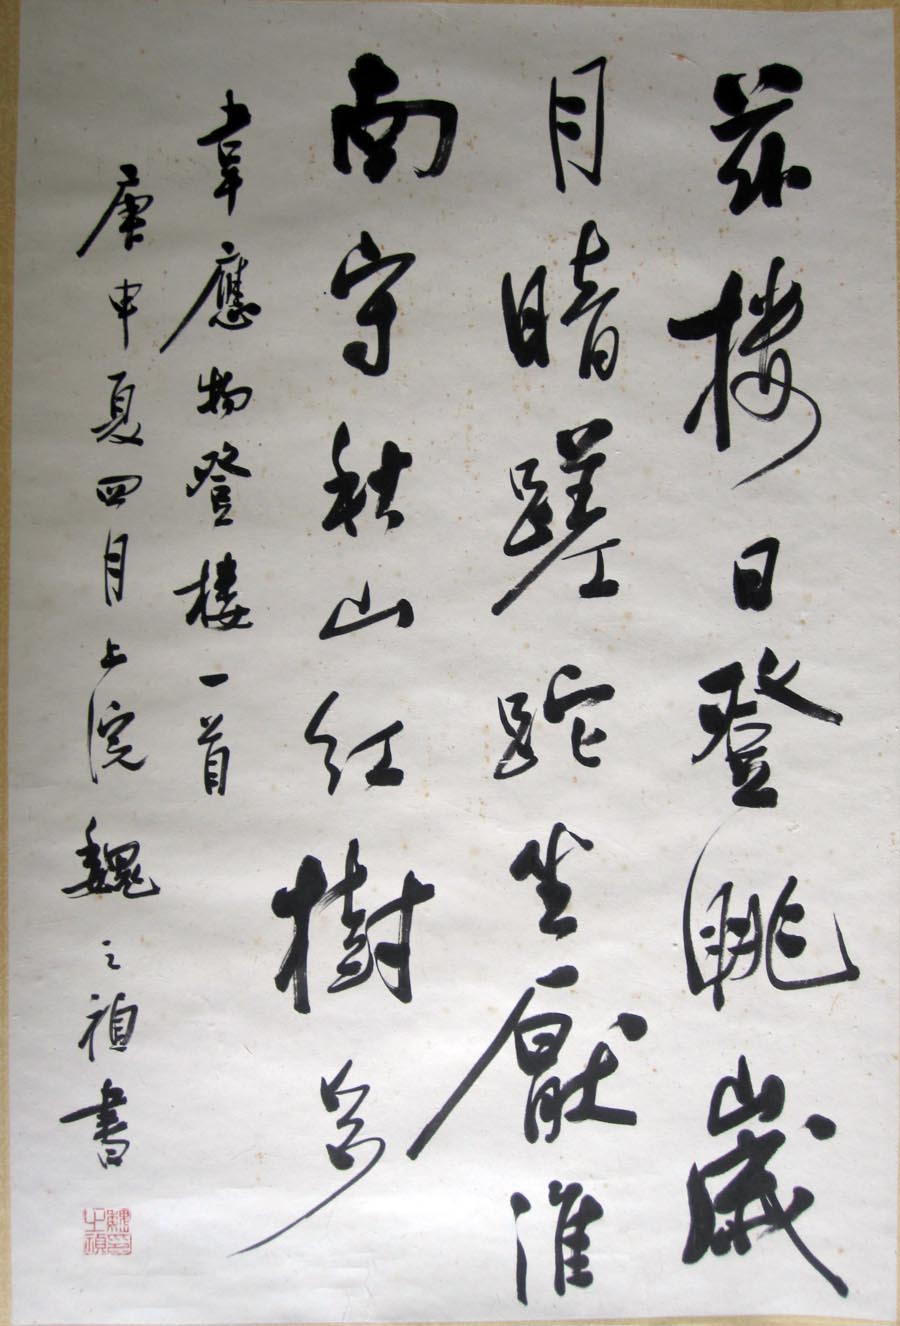 茲樓日登眺歲
月暗蹉跎坐厭淮
南守秋山紅樹多
韋應物登樓一首
庚申夏四月上浣魏之禎書
魏之禎印